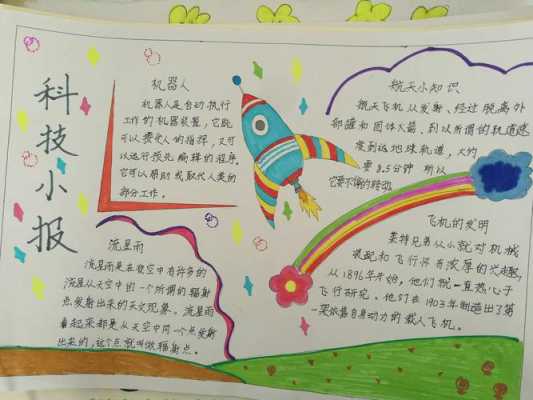 科技小报
机器人
机器人是自动执行
工作的机器装置，它既
可以接受人的指挥，又可
以运行预先编排的程序。
它可以帮助或取代人类的
部分工作。
流星雨
流星雨是在夜空中有许多的
流星从天空中的一个所谓的辐射
点发射出来的天文现象。流星雨
看起来都是从天空中同一个点发射
出来的，这个点就叫做辐射点。
航天小知识
航天飞机从发射、经过脱离外
部罐和固体火箭，到以所谓的轨道速
度到达地球轨道，大约
要8.5分钟 所以
它要不停的转动
飞机的发明
莱特兄弟从小就对机械
装配和飞行怀有浓厚的兴趣，
从1896年开始，他们就一直热心于
飞行研究。他们在1903年制造出了第
一架依靠自身动力的载人飞机。